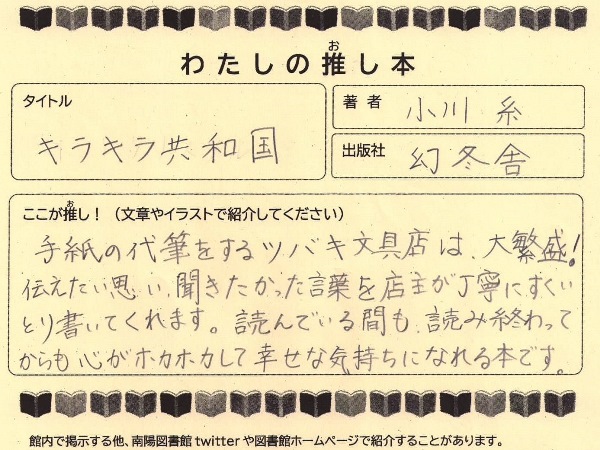 わたしの推し本
タイトル
キラキラ共和国
著者
小川 糸
出版社
幻冬舎
ここが推し!(文章やイラストで紹介してください)
手紙の代筆をするツバキ文具店は、大繁盛!
伝えたい思い、聞きたかった言葉を店主が丁寧にすくい
とり書いてくれます。読んでいる間も、読み終わって
からも心がホカホカして幸せな気持ちになれる本です。
館内で掲示する他、南陽図書館twitterや図書館ホームページで紹介することがあります。